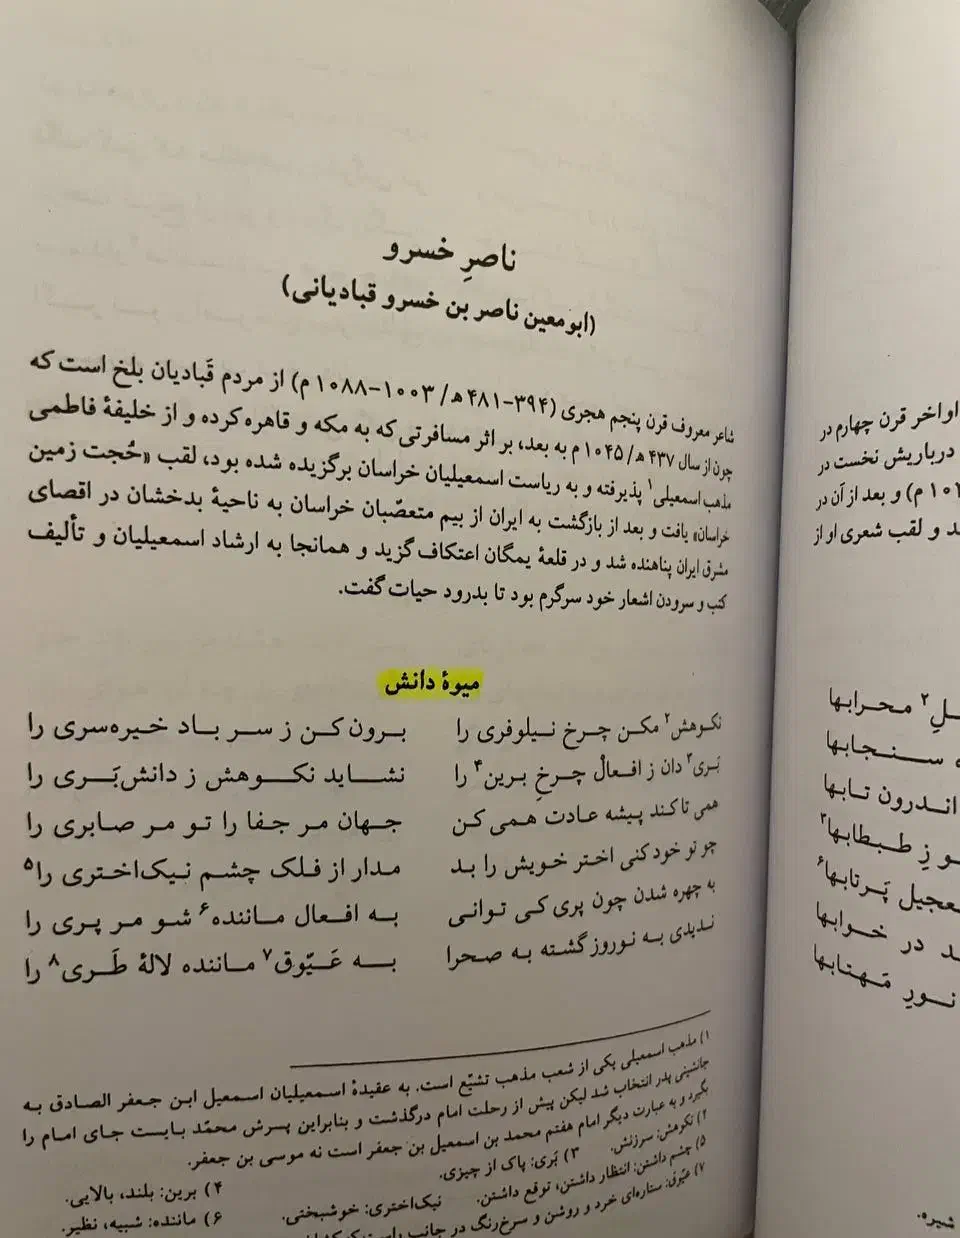 ناصرِ خسرو
(ابومعین ناصر بن خسرو قبادیانی)
شاعر معروف قرن پنجم هجری (۳۹۴-۴۸۱ ه‍/ ۱۰۰۳-۱۰۸۸ م) از مردم قَبادیان بلخ است که
چون از سال ۴۳۷ ه‍/ ۱۰۴۵ م به بعد، بر اثر مسافرتی که به مکه و قاهره کرده و از خلیفهٔ فاطمی
مذهب اسمعیلی۱ پذیرفته و به ریاست اسمعیلیان خراسان برگزیده شده بود، لقب «حُجت زمین
خراسان» یافت و بعد از بازگشت به ایران از بیم متعصّبان خراسان به ناحیهٔ بدخشان در اقصای
مشرق ایران پناهنده شد و در قلعهٔ یمگان اعتکاف گزید و همانجا به ارشاد اسمعیلیان و تألیف
کتب و سرودن اشعار خود سرگرم بود تا بدرود حیات گفت.
میوهٔ دانش
نکوهش۲ مکن چرخ نیلوفری را برون کن ز سر باد خیره‌سری را
بَری۳ دان ز افعالْ چرخِ برین۴ را نشاید نکوهش ز دانش‌بَری را
همی تا کند پیشه عادت همی کن جهان مر جفا را تو مر صابری را
چو تو خود کنی اختر خویش را بد مدار از فلک چشم نیک‌اختری را۵
به چهره شدن چون پری کی توانی به افعال ماننده۶ شو مر پری را
ندیدی به نوروز گشته به صحرا به عَیّوق۷ ماننده لالهٔ طَری۸ را
۱) مذهب اسمعیلی یکی از شعب مذهب تشیّع است. به عقیدهٔ اسمعیلیان اسمعیل ابن جعفر الصادق به
جانشینی پدر انتخاب شد لیکن پیش از رحلت امام درگذشت و بنابراین پسرش محمّد بایست جای امام را
بگیرد و به عبارت دیگر امام هفتم محمد بن اسمعیل بن جعفر است نه موسی بن جعفر.
۲) نکوهش: سرزنش. ۳) بَری: پاک از چیزی. ۴) برین: بلند، بالایی.
۵) چشم داشتن: انتظار داشتن، توقع داشتن. نیک‌اختری: خوشبختی. ۶) ماننده: شبیه، نظیر.
۷) عیّوق: ستاره‌ای خرد و روشن و سرخ‌رنگ در جانب راست
اواخر قرن چهارم در
درباریش نخست در
م) و بعد از آن در
د و لقب شعری او از
۲ محرابها
سنجابها
اندرون تابها
و زِ طبطابها۳
پَرتابها۶
د در خوابها
نورِ مَهتابها
شیره.